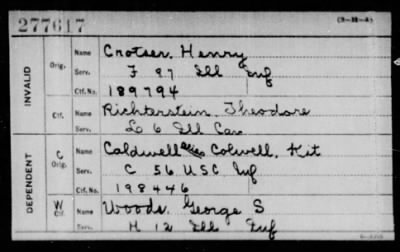 277617 (3-38-A)
INVALID
Orig. Name Crotser, Henry
Serv. F 97 Ill Inf
Ctf. No. 189794
Ctf. Name Richterstein, Theodore
Serv. L 6 Ill Cav
DEPENDENT
C Orig. Name Caldwell alias Colwell, Kit
Serv. C 56 USC Inf
Ctf. No. 198446
W Ctf. Name Woods, George S
Serv. H 12 Ill Inf